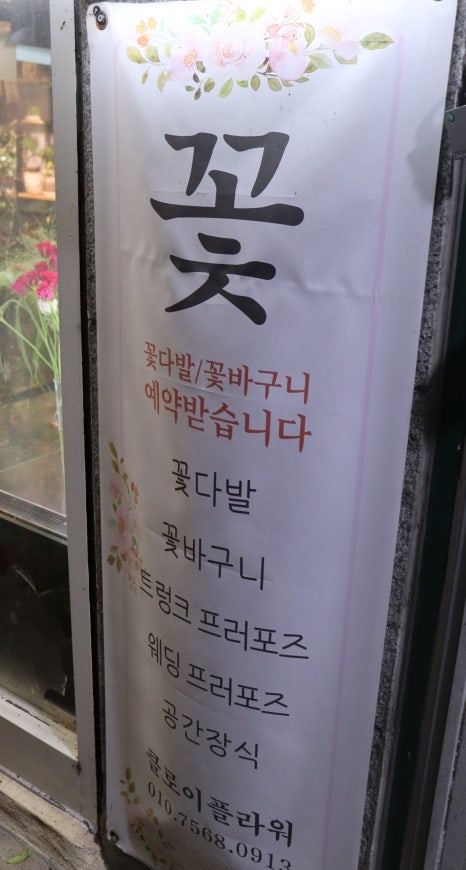 꽃
꽃다발/꽃바구니
예약받습니다
꽃다발
꽃바구니
트렁크 프러포즈
웨딩 프러포즈
공간장식
클로이플라워
010.7568.0913